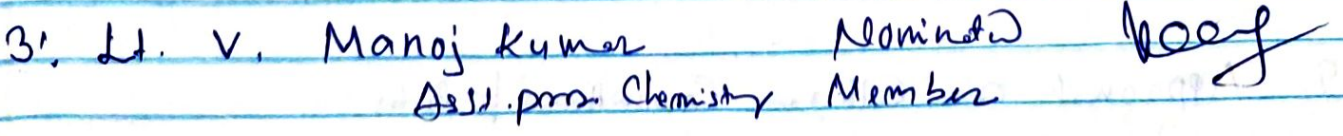 3. Lt. V. Manoj Kumar Nominated
Asst. prof. Chemistry Member